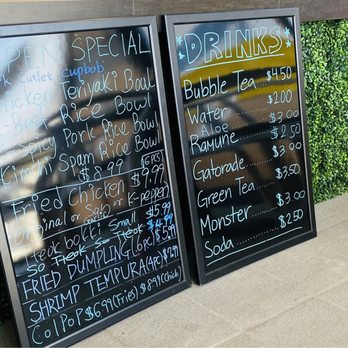 OPEN SPECIAL
Cutlet Cupbob
Chicken Teriyaki Bowl
Rice Bowl
Spicy Pork Rice Bowl
Kimchi Spam Rice Bowl
$8.99
Fried Chicken $9.99
Original or
or K-pepper
Small $5.99
So Tteok So Tteok
FRIED DUMPLING (6pc) $3.59
SHRIMP TEMPURA (4pc) $2.99
Col Pop $6.99 (Fries) $8.99 (Chick)
DRINKS
Bubble Tea $4.50
Water $2.00
Aloe $3.00
Ramune $2.50
Gatorade $3.90
Green Tea $3.50
Monster $3.00
Soda $2.50